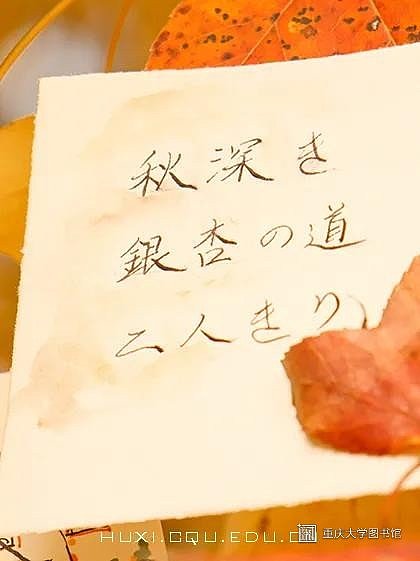 秋深き
銀杏の道
二人きり
HUXI.CQU.EDU.C
重庆大学图书馆